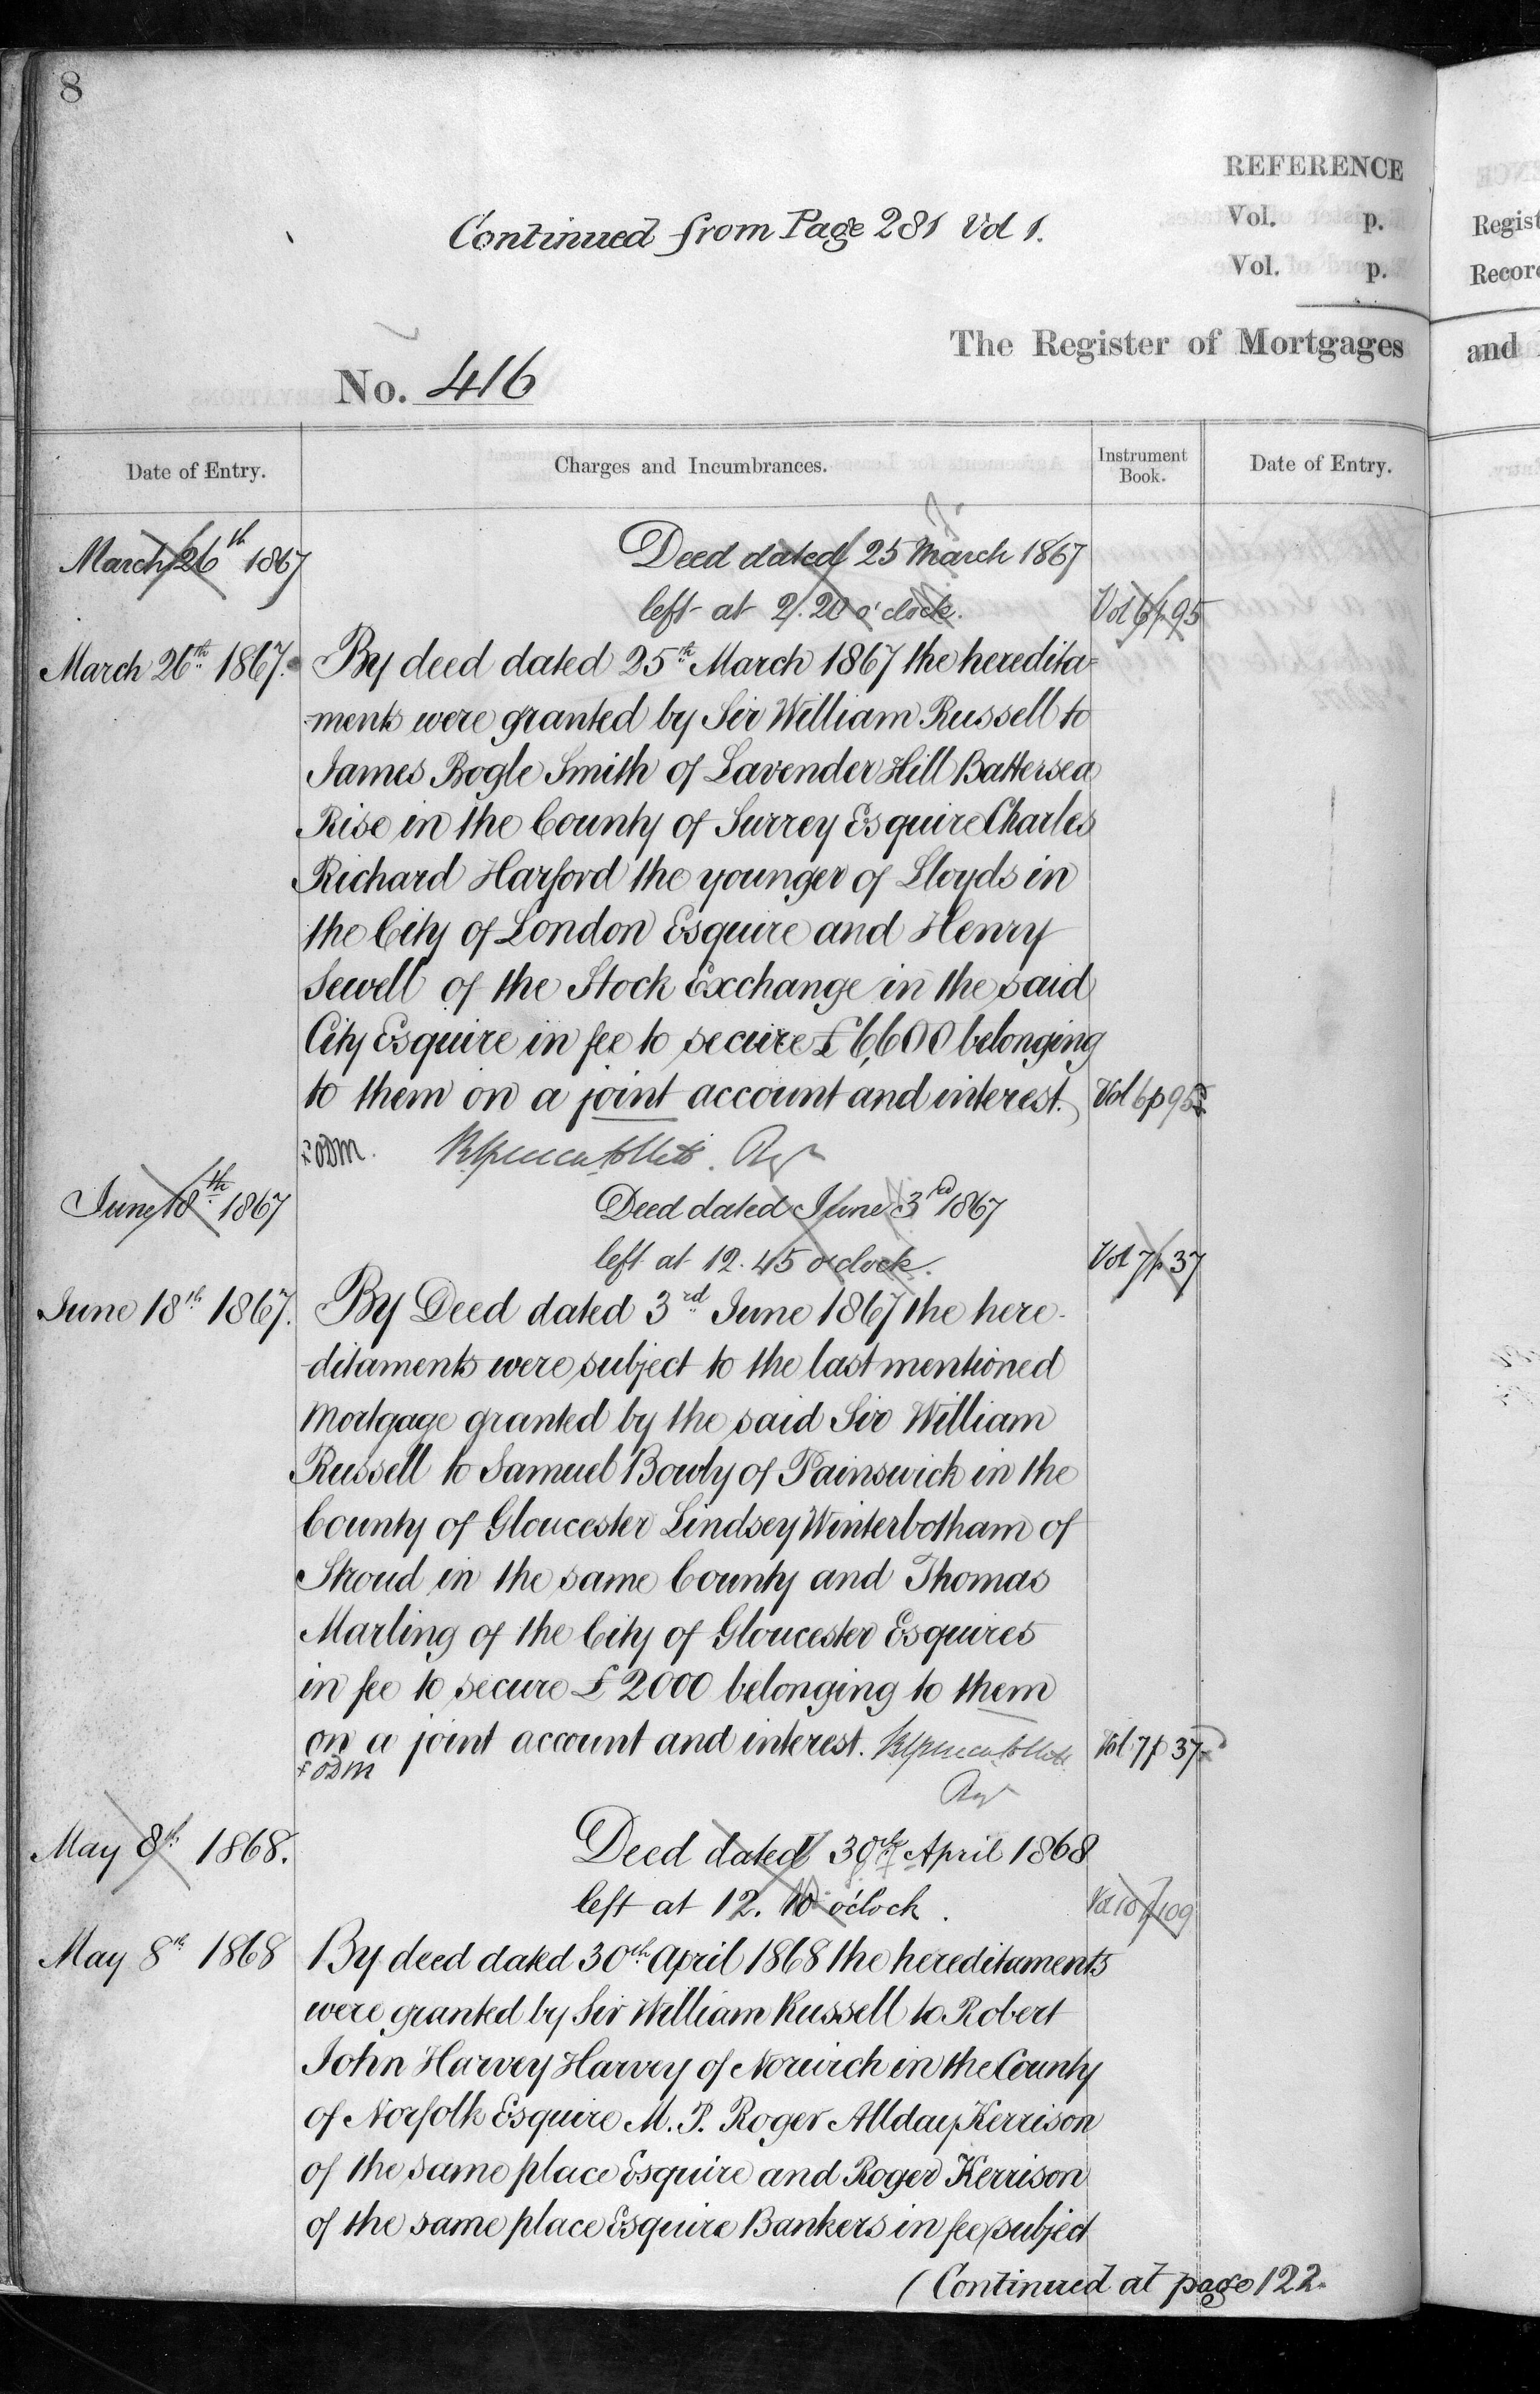 8
REFERENCE
Vol. p.
Vol. p.
Continued from Page 281 Vol 1.
The Register of Mortgages
No. 416
Date of Entry.
Charges and Incumbrances.
Instrument Book.
Date of Entry.
March 26th 1867
Deed dated 25 March 1867
left at 2.20 o'clock.
Vol 6 p. 95
March 26th 1867. By deed dated 25th March 1867 the heredita-
-ments were granted by Sir William Russell to
James Bogle Smith of Lavender Hill Battersea
Rise in the County of Surrey Esquire Charles
Richard Harford the younger of Lloyds in
the City of London Esquire and Henry
Sewell of the Stock Exchange in the said
City Esquire in fee to secure £6,600 belonging
to them on a joint account and interest. Vol 6 p 95
June 18th 1867
Deed dated June 3rd 1867
left at 12.45 o'clock.
Vol 7 p 37
June 18th 1867. By Deed dated 3rd June 1867 the here-
-ditaments were subject to the last mentioned
Mortgage granted by the said Sir William
Russell to Samuel Bowly of Painswick in the
County of Gloucester Lindsey Winterbotham of
Stroud in the same County and Thomas
Marling of the City of Gloucester Esquires
in fee to secure £2000 belonging to them
on a joint account and interest. Vol 7 p 37
May 8th 1868.
Deed dated 30th April 1868
left at 12. 10 o'clock.
Vol 10 p 109
May 8th 1868 By deed dated 30th April 1868 the hereditaments
were granted by Sir William Russell to Robert
John Harvey Harvey of Norwich in the County
of Norfolk Esquire M.P. Roger Allday Kerrison
of the same place Esquire and Roger Kerrison
of the same place Esquire Bankers in fee subject
(Continued at page 122.
Regist
and